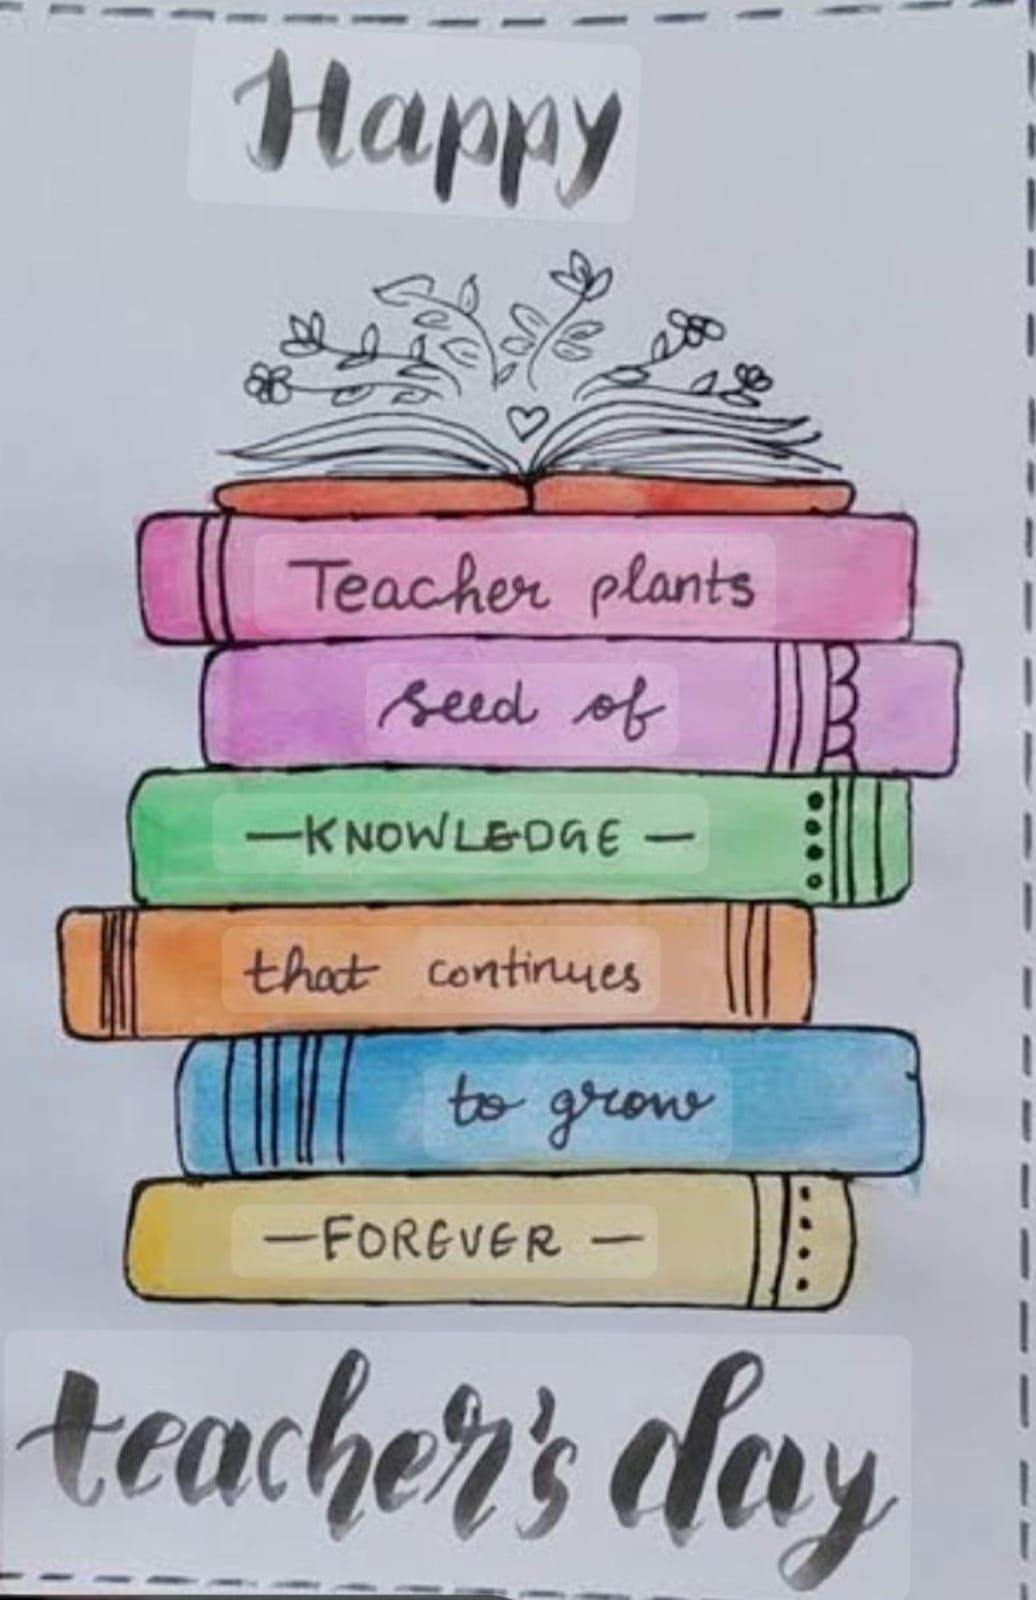 Happy
Teacher plants
seed of
—KNOWLEDGE —
that continues
to grow
—FOREVER —
teacher's day